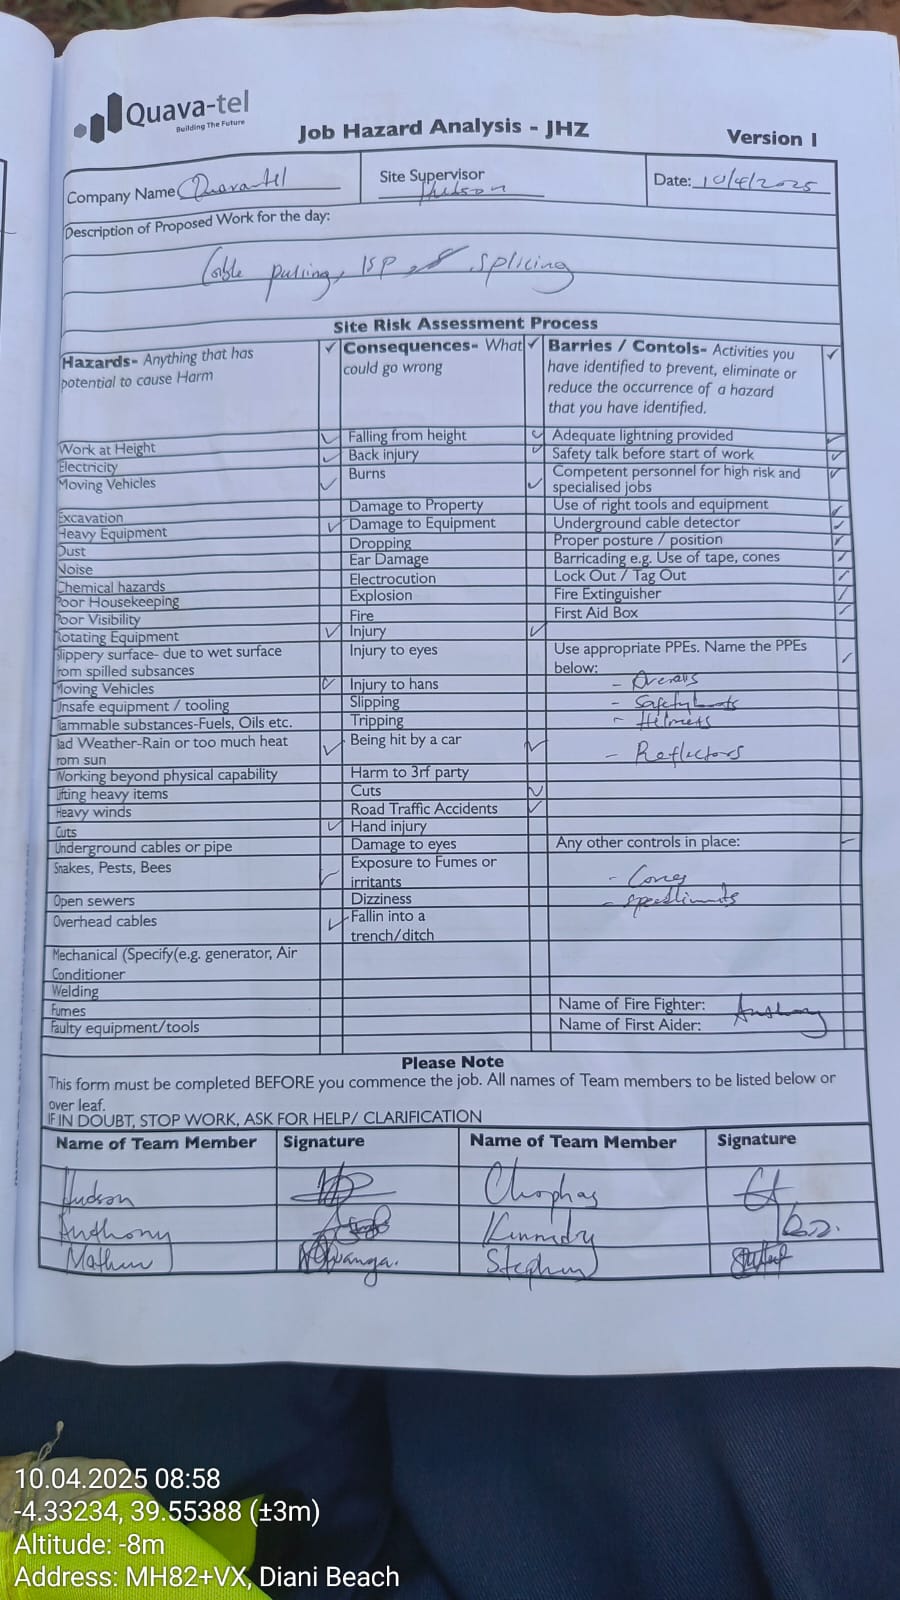 Quava-tel
Building The Future
Job Hazard Analysis - JHZ
Version 1
Company Name Quavatel
Site Supervisor Hudson
Date: 10/4/2025
Description of Proposed Work for the day:
Cable pulling, ISP & splicing
Site Risk Assessment Process
Hazards- Anything that has potential to cause Harm ✓ Consequences- What could go wrong ✓ Barries / Contols- Activities you have identified to prevent, eliminate or reduce the occurrence of a hazard that you have identified. ✓
Work at Height ✓ Falling from height ✓ Adequate lightning provided ✓
Electricity ✓ Back injury ✓ Safety talk before start of work ✓
Moving Vehicles ✓ Burns ✓ Competent personnel for high risk and specialised jobs ✓
Excavation Damage to Property Use of right tools and equipment ✓
Heavy Equipment ✓ Damage to Equipment Underground cable detector ✓
Dust Dropping Proper posture / position ✓
Noise Ear Damage Barricading e.g. Use of tape, cones ✓
Chemical hazards Electrocution Lock Out / Tag Out ✓
Poor Housekeeping Explosion Fire Extinguisher ✓
Poor Visibility Fire First Aid Box ✓
Rotating Equipment ✓ Injury ✓
Slippery surface- due to wet surface Injury to eyes Use appropriate PPEs. Name the PPEs
rom spilled subsances below: ✓
Moving Vehicles ✓ Injury to hans - Overals
Unsafe equipment / tooling Slipping - Safetyboots
lammable substances-Fuels, Oils etc. Tripping - Helmets
Bad Weather-Rain or too much heat ✓ Being hit by a car ✓ - Reflectors
rom sun
Working beyond physical capability Harm to 3rf party
ifting heavy items Cuts ✓
Heavy winds Road Traffic Accidents ✓
Cuts ✓ Hand injury
Underground cables or pipe Damage to eyes Any other controls in place:
Snakes, Pests, Bees ✓ Exposure to Fumes or irritants - Cones
Open sewers Dizziness - speedlimits
Overhead cables ✓ Fallin into a trench/ditch
Mechanical (Specify(e.g. generator, Air
Conditioner
Welding
Fumes Name of Fire Fighter: Anthony
Faulty equipment/tools Name of First Aider:
Please Note
This form must be completed BEFORE you commence the job. All names of Team members to be listed below or
over leaf.
IF IN DOUBT, STOP WORK, ASK FOR HELP/ CLARIFICATION
Name of Team Member Signature Name of Team Member Signature
Hudson Chophas
Anthony Kennedy
Mathew Stephen
10.04.2025 08:58
-4.33234, 39.55388 (±3m)
Altitude: -8m
Address: MH82+VX, Diani Beach